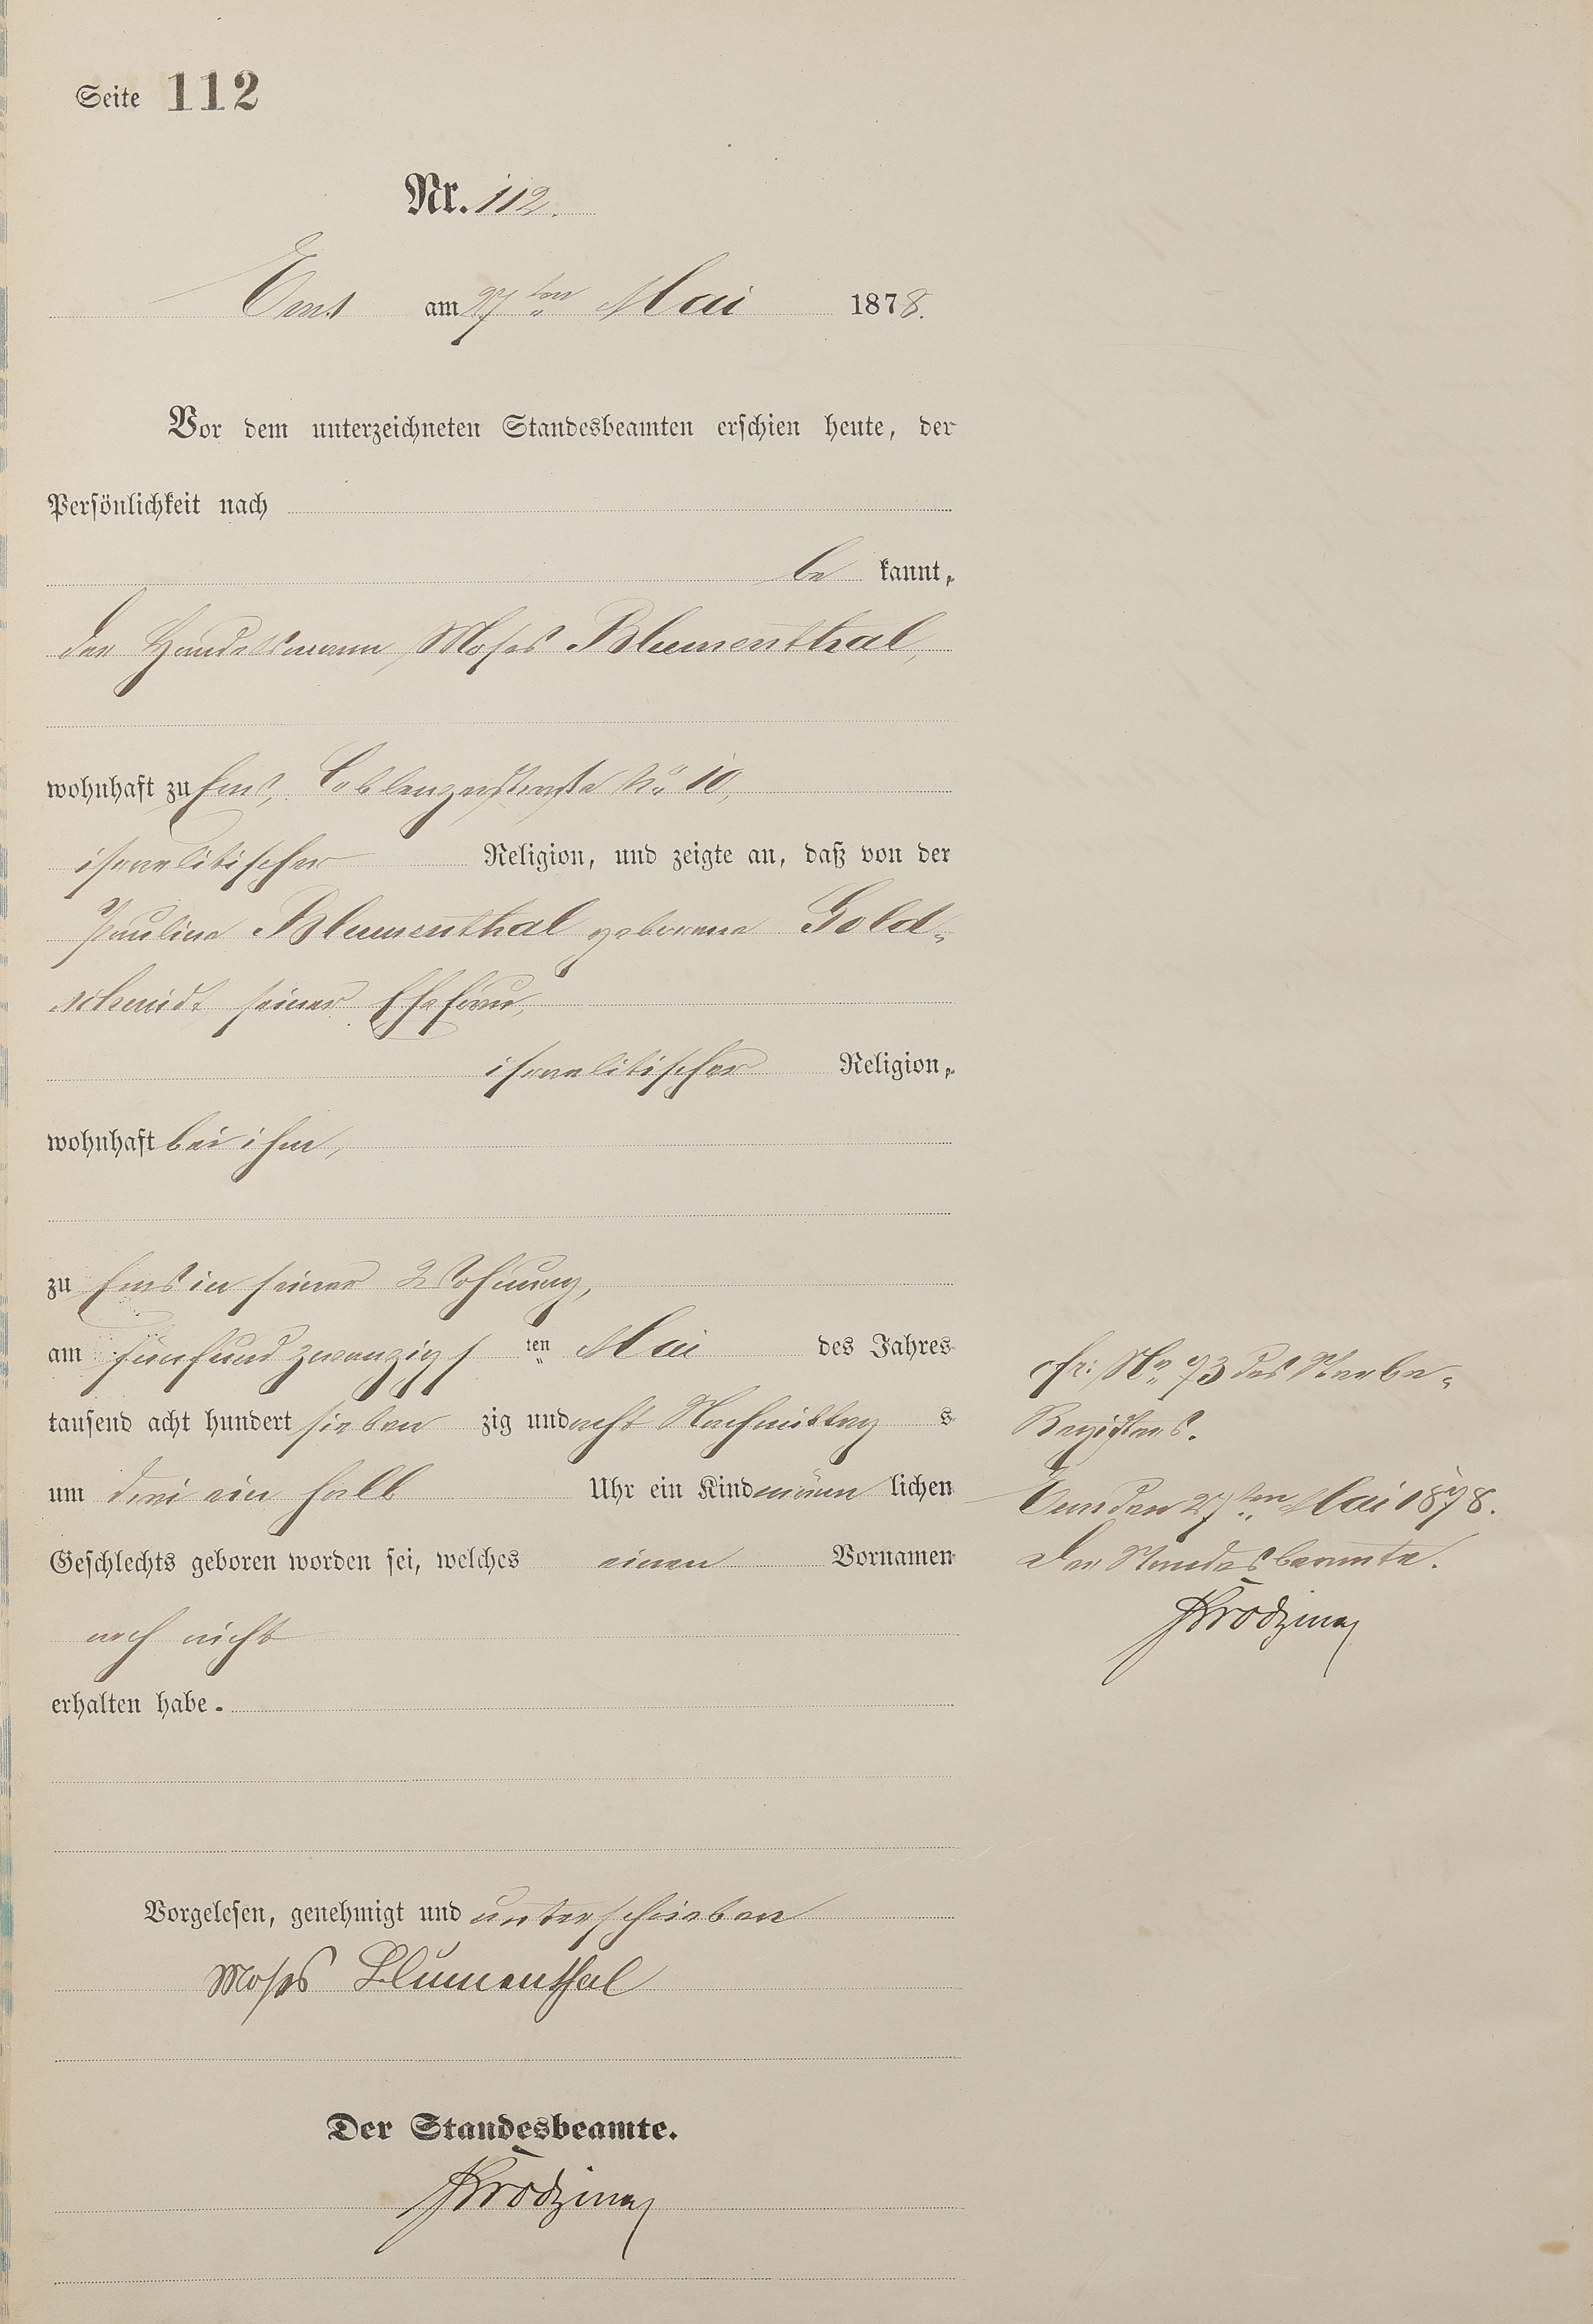 Seite 112
Nr. 112.
Ems am 27ten Mai 1878.
Vor dem unterzeichneten Standesbeamten erschien heute, der
Persönlichkeit nach
be kannt,
der Handelsmann Moses Blumenthal,
wohnhaft zu Ems, Coblenzerstraße No 10,
israelitischer Religion, und zeigte an, daß von der
Pauline Blumenthal geborene Gold-
schmidt seiner Ehefrau,
israelitischer Religion,
wohnhaft bei ihm,
zu Ems in seiner Wohnung,
am fünfundzwanzigs ten Mai des Jahres
tausend acht hundert sieben zig und acht Nachmittag s
um drei ein halb Uhr ein Kind männ lichen
Geschlechts geboren worden sei, welches einen Vornamen
noch nicht
erhalten habe.
Vorgelesen, genehmigt und unterschrieben
Moses Blumenthal
Der Standesbeamte.
cfr: No 73 des Sterbe-
Registers.
Ems den 27ten Mai 1878.
Der Standesbeamte.